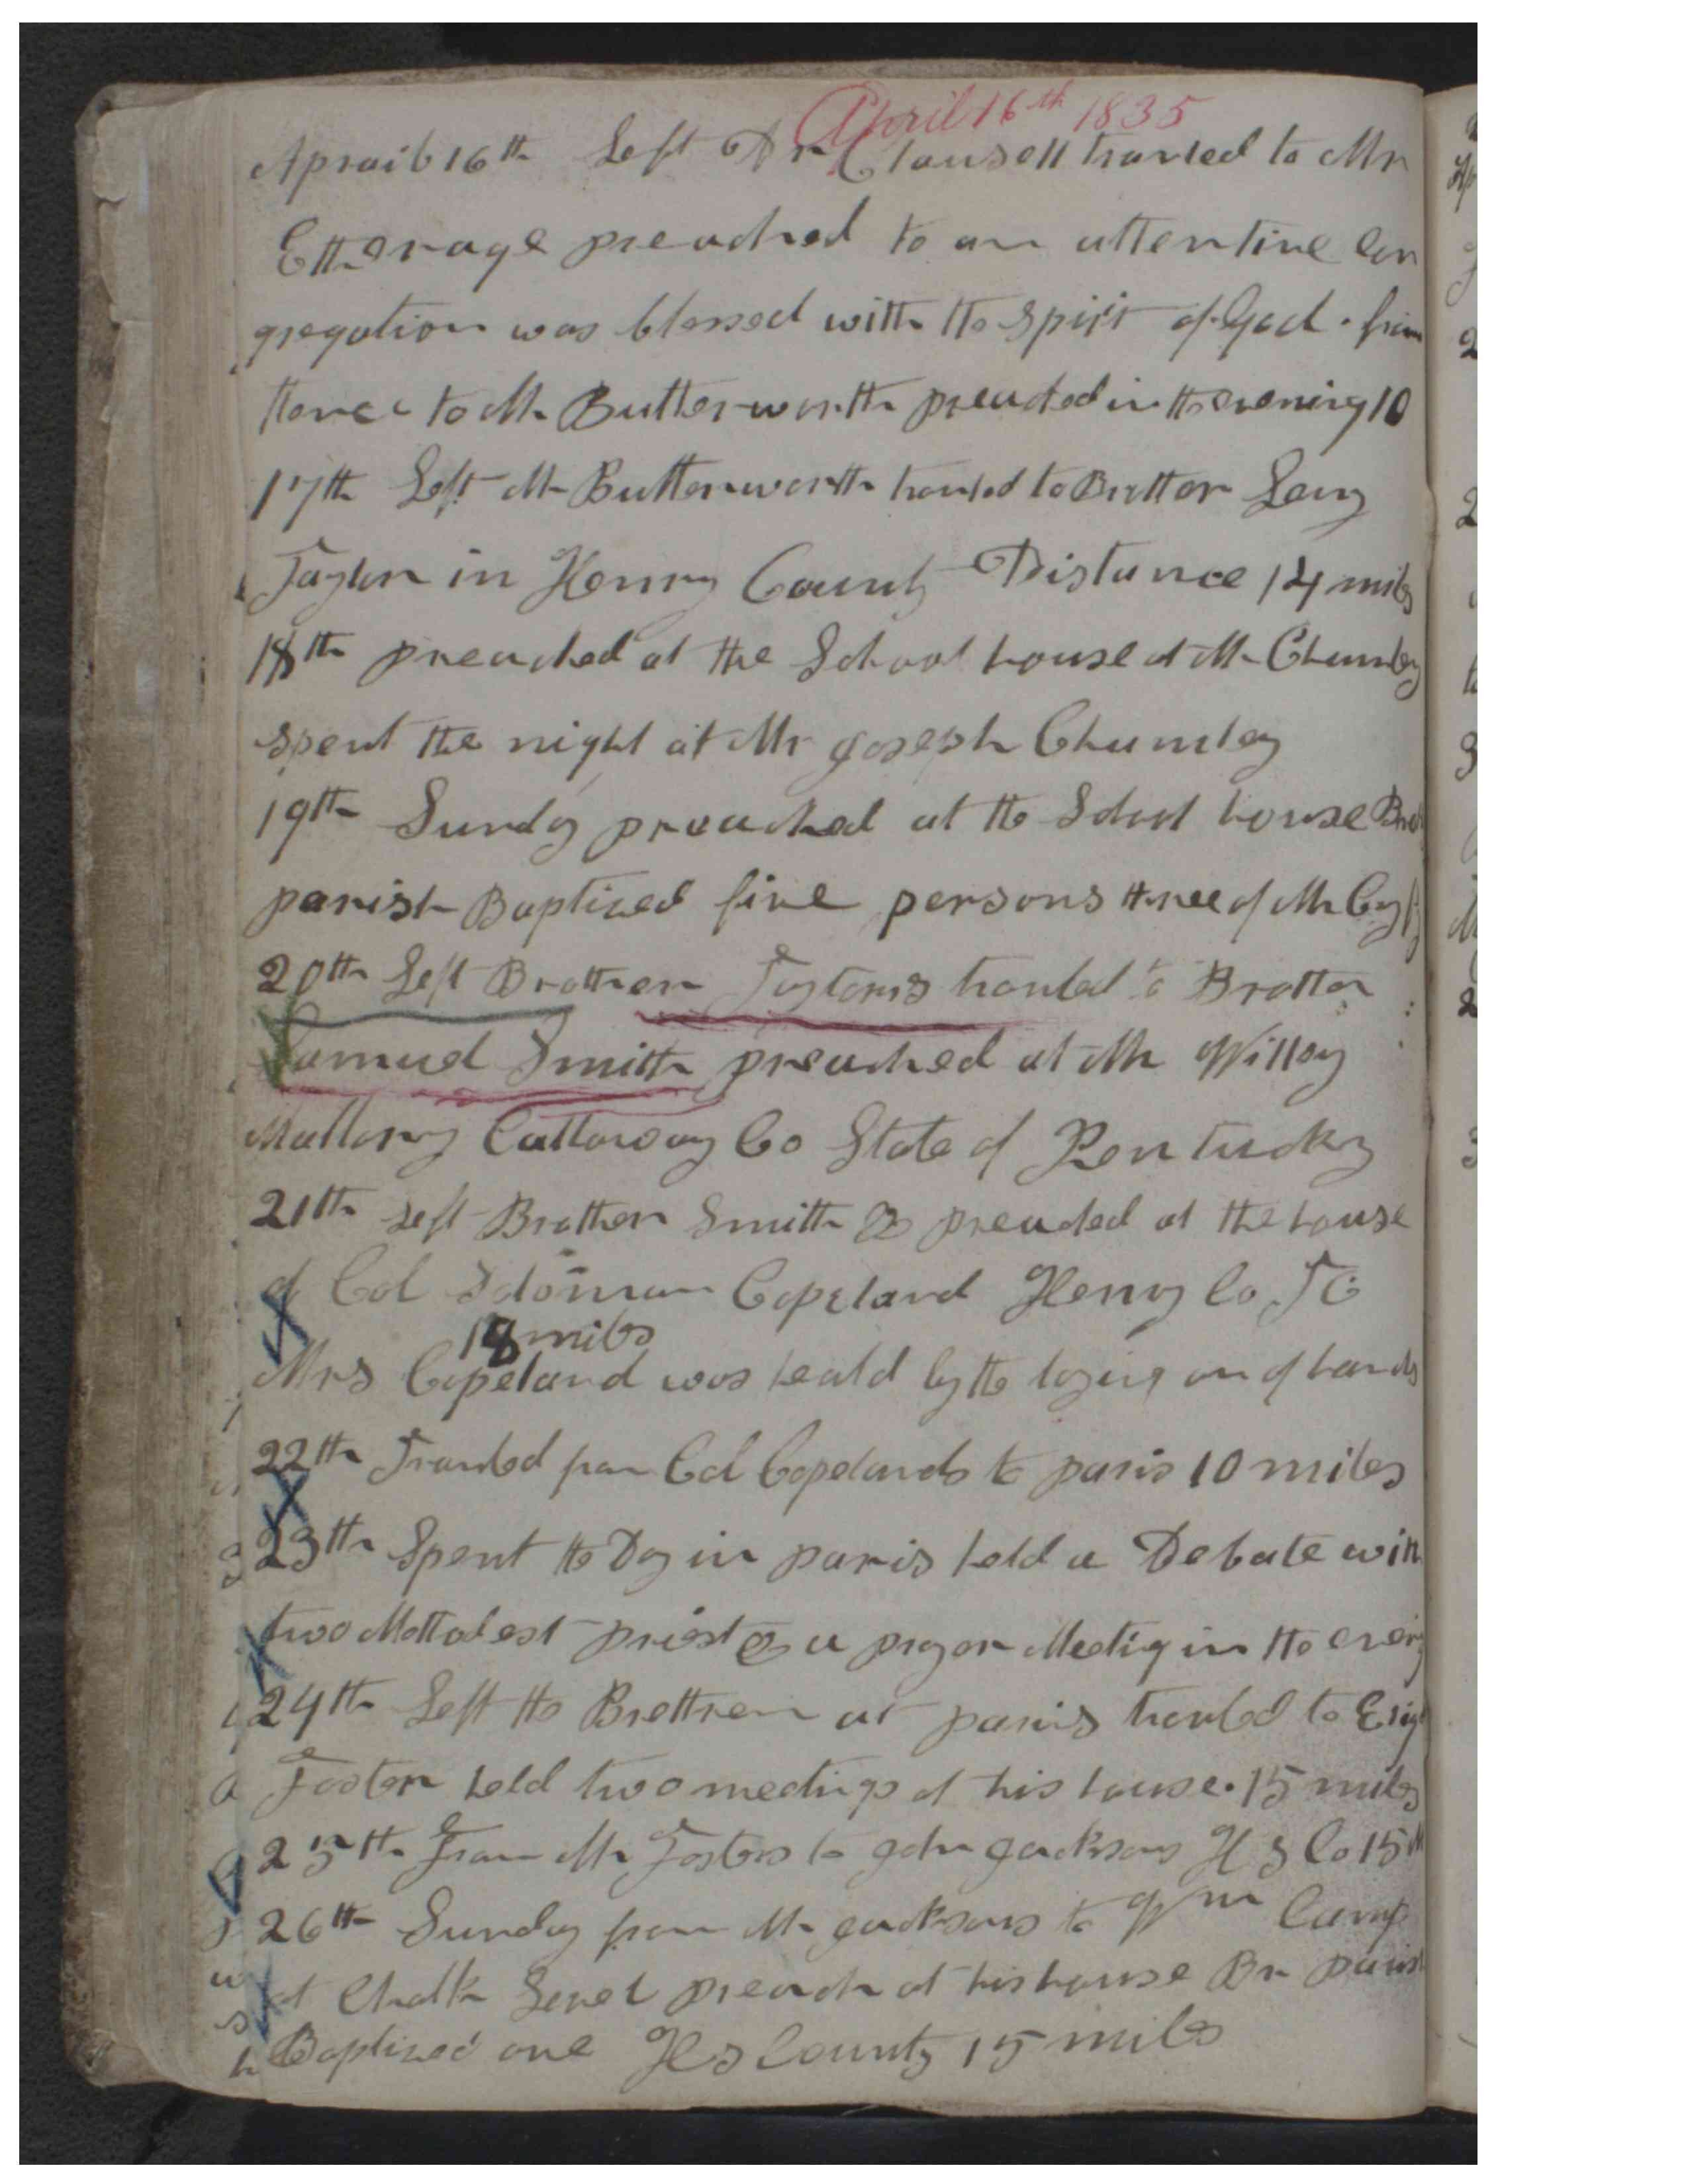 April 16th 1835
Apraib 16th Left Dr Clausell traviled to Mr
Etherage preached to an attentive con
gregation was blessed with the spirit of God. from
thence to Mr Butterworth preached in the evening 10
17th Left Mr Butterworth traviled to Brother Levy
Taylor in Henry County Distance 14 miles
18th preached at the School house at Mr Chumley
spent the night at Mr Joseph Chumley
19th Sunday preached at the School house Bro
parish Baptised five persons three of Mr
20th Left Brother Taylors traviled to Brother
Samuel Smith preached at Mr Willey
Mallory Calloway Co State of Kentucky
21th Left Brother Smith & preached at the house
of Col Solomon Copeland Henry Co Te
18 miles
Mrs Copeland was heald by the laying on of hands
22th Traviled from Col Copelands to paris 10 miles
23th Spent the Day in paris held a Debate with
two Methodest priest & a prayer Meetig in the
24th Left the Brethren at paris traviled to
Foster held two meetings at his house. 15 miles
25th From Mr Fosters to John Jacksons H S Co 15 M
26th Sunday from Mr Jacksons to Wm Camp
at Chalk Level preach at his house Br parish
Baptised one H S County 15 miles